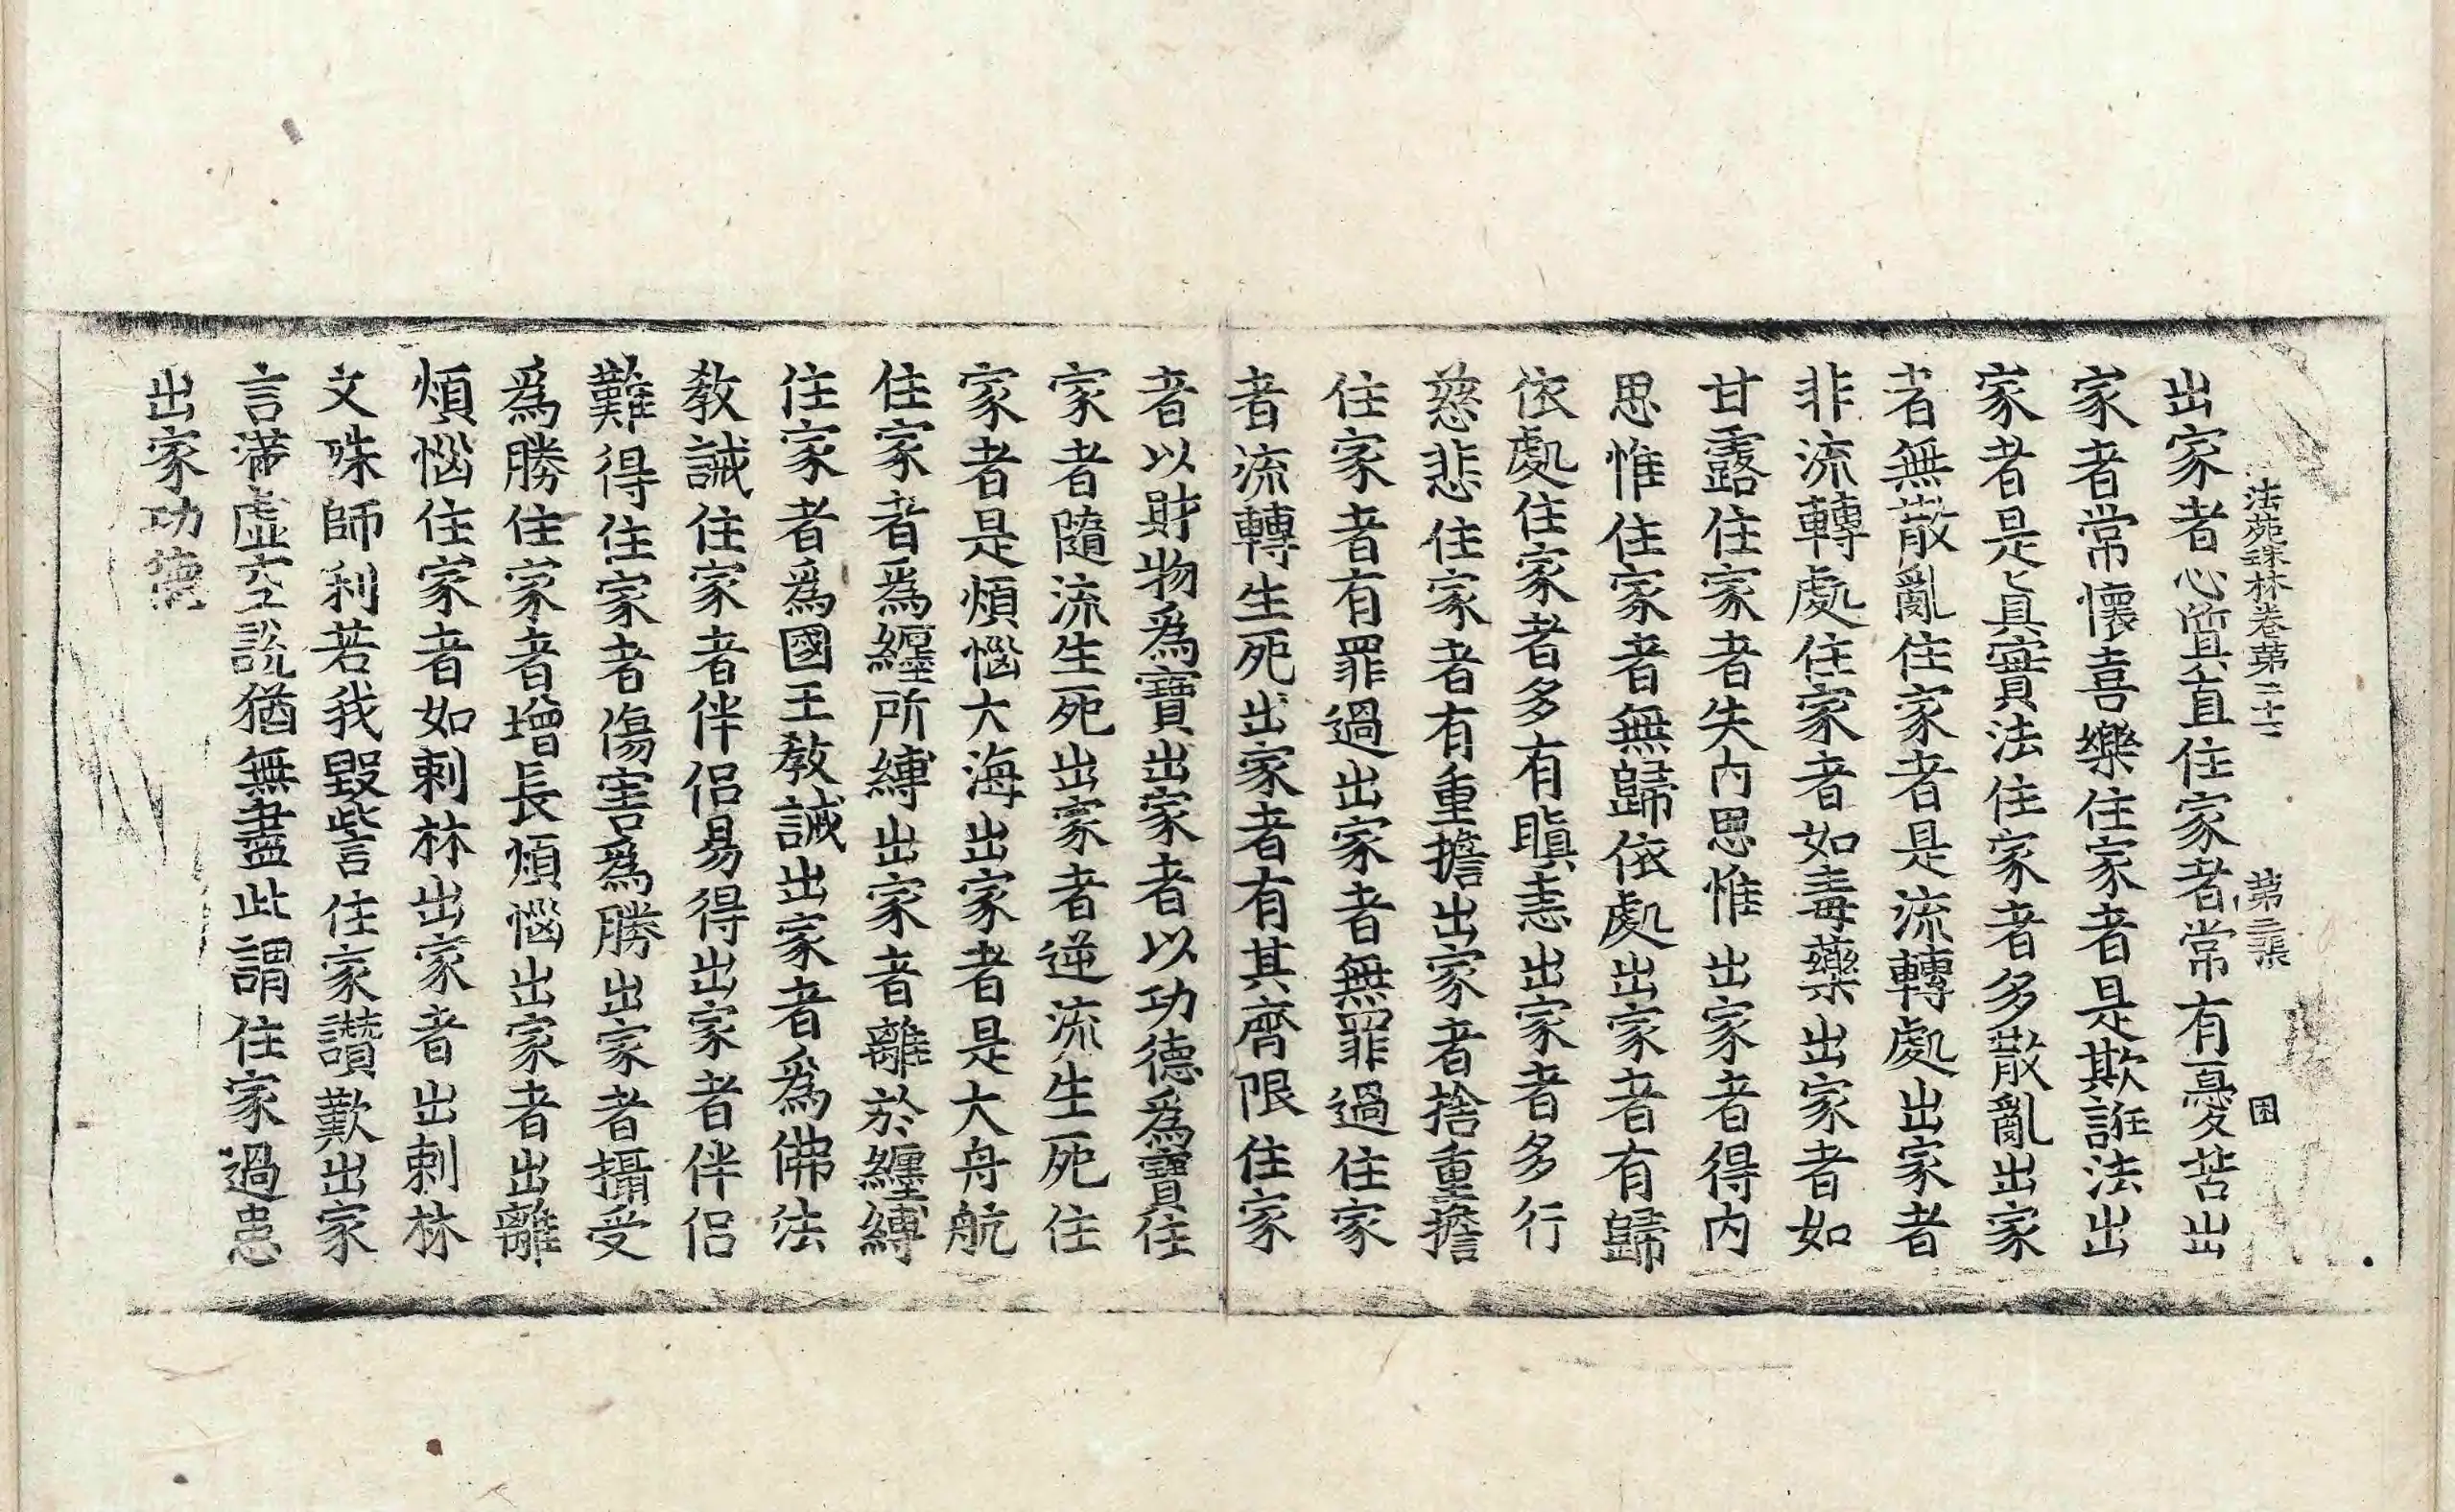 法苑珠林卷第二十二 第三張 困
出家者心質直住家者常有憂苦出
家者常懷喜樂住家者是欺誑法出
家者是真實法住家者多散亂出家
者無散亂住家者是流轉處出家者
非流轉處住家者如毒藥出家者如
甘露住家者失內思惟出家者得內
思惟住家者無歸依處出家者有歸
依處住家者多有瞋恚出家者多行
慈悲住家者有重擔出家者捨重擔
住家者有罪過出家者無罪過住家
者流轉生死出家者有其齊限住家
者以財物爲寶出家者以功德爲寶住
家者隨流生死出家者逆流生死住
家者是煩惱大海出家者是大舟航
住家者爲纏所縛出家者離於纏縛
住家者爲國王教誡出家者爲佛法
教誡住家者伴侶易得出家者伴侶
難得住家者傷害爲勝出家者攝受
爲勝住家者增長煩惱出家者出離
煩惱住家者如刺林出家者出刺林
文殊師利若我毀訾住家讚歎出家
言滿虛空說猶無盡此謂住家過患
出家功德